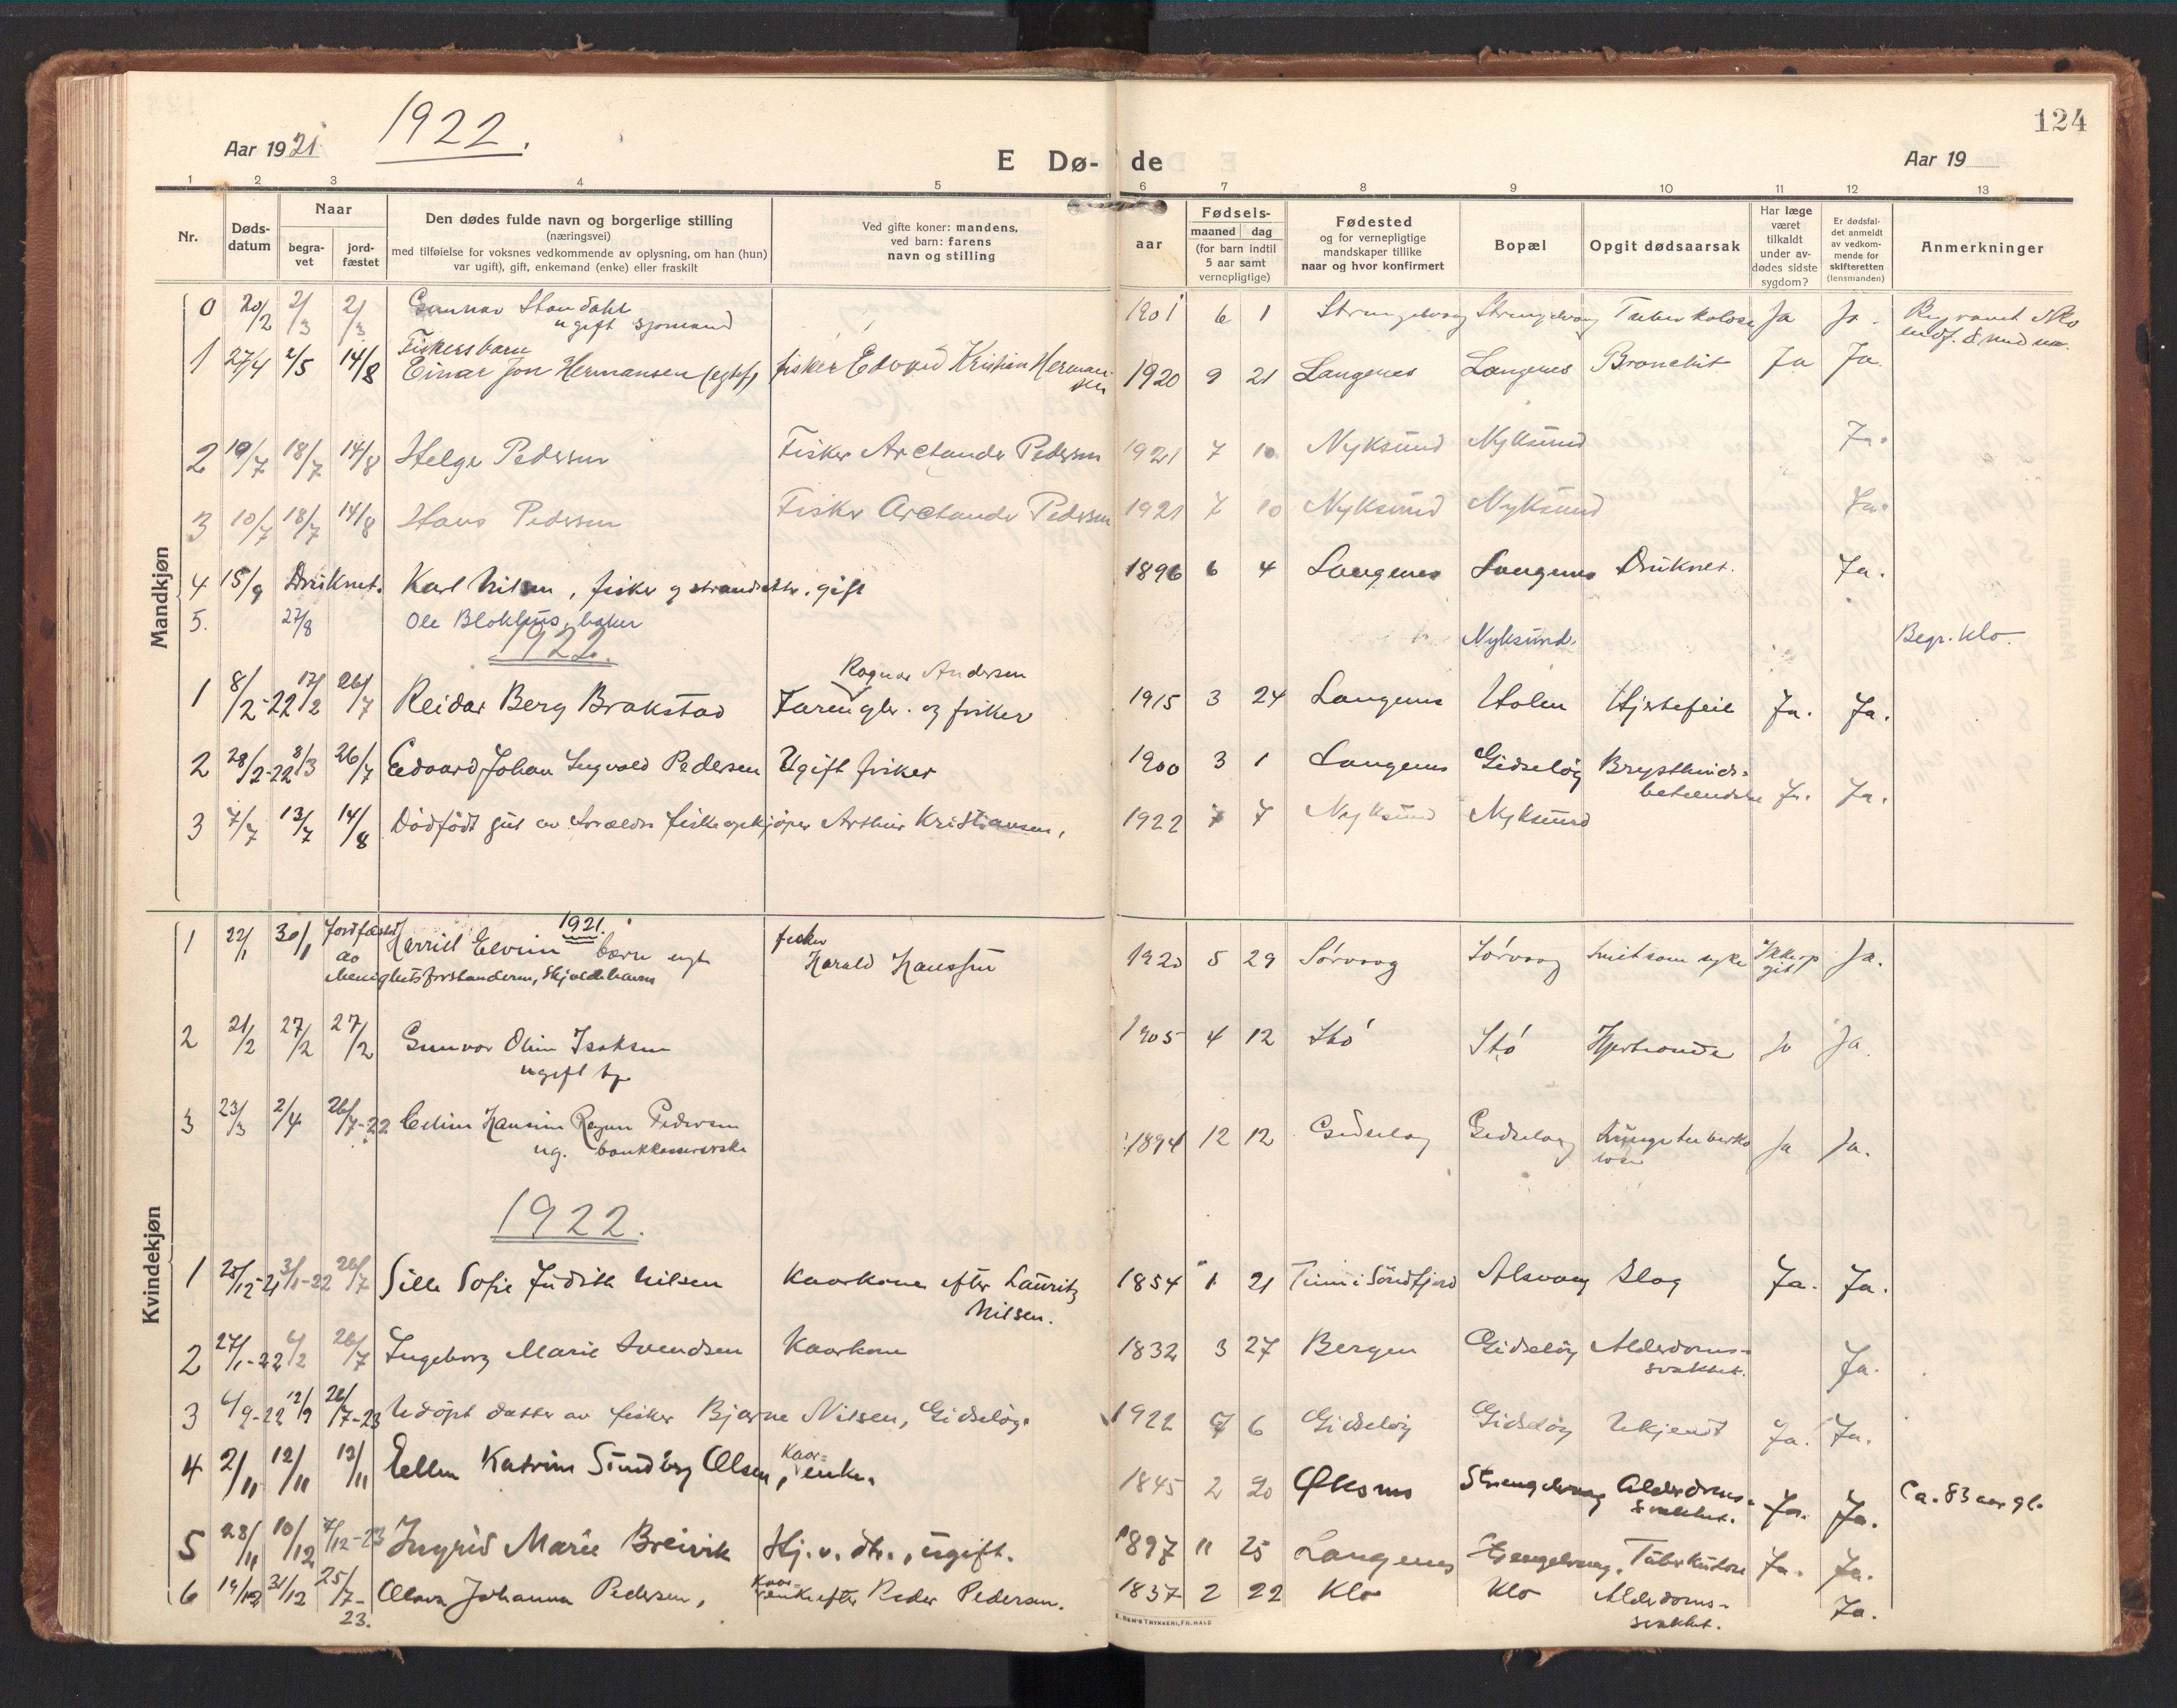 124
Aar 1921 1922. E Dø- de Aar 19
1 2 3 4 5 6 7 8 9 10 11 12 13
Nr. Døds-datum Naar begra-vet jord-fæstet Den dødes fulde navn og borgerlige stilling (næringsvei) med tilføielse for voksnes vedkommende av oplysning, om han (hun) var ugift), gift, enkemand (enke) eller fraskilt Ved gifte koner: mandens, ved barn: farens navn og stilling aar Fødsels- maaned dag (for barn indtil 5 aar samt vernepligtige) Fødested og for vernepligtige mandskaper tillike naar og hvor konfirmert Bopæl Opgit dødsaarsak Har læge været tilkaldt under av-dødes sidste sygdom? Er dødsfal-det anmeldt av vedkom-mende for skifteretten (lensmanden) Anmerkninger
Mandkjøn
0 20/2 2/3 2/3 Gunnar Strandahl ugift sjømand 1901 6 1 Strengelvaag Strengelvaag Tuberkolose Ja Ja.
Fiskersbarn
1 27/4 2/5 14/8 Einar Jon Hermansen (egtef) fisker Edvard Kristian Hermansen 1920 9 21 Langenes Langenes Bronchit Ja Ja.
2 19/7 18/7 14/8 Helge Pedersen Fisker Arctander Pedersen 1921 7 10 Nyksund Nyksund Ja.
3 10/7 18/7 14/8 Hans Pedersen Fisker Arctander Pedersen 1921 7 10 Nyksund Nyksund Ja.
4 15/9 Druknet. Karl Nilsen, fisker og strandsitter. gift 1896 6 4 Langenes Langenes Druknet. Ja.
5. 27/8 Ole Blokhus, baker Nyksund. Begr. Klo.
1922.
1 8/2-22 17/2 26/7 Reidar Berg Brakstad Ragnar Andersen Faren glr. og fisker 1915 3 24 Langenes Holen Hjertefeil Ja. Ja.
2 28/2-22 8/3 26/7 Edvard Johan Ingvald Pedersen Ugift fisker 1900 3 1 Langenes Gidsløy Brysthinde-betændelse Ja. Ja.
3 7/7 13/7 14/8 Dödfödt gut av forældre fiskeopkjøper Arthur Kristiansen, 1922 7 7 Nyksund Nyksund
Kvindekjøn
1921.
1 22/1 30/1 Jordfæstet av Menighetsforstanderen, Skjoldehavn Elvine barn egte fisker Harald Hanssen 1920 5 29 Sørvaag Sørvaag Smitsom syke Ikke opgit Ja.
2 21/2 27/2 27/2 Gunvor Oline Isaksen ugift tj. 1905 4 12 Stø Stø Ja Ja.
3 23/3 2/4 26/7-22 Hansine Pedersen ug. bankkassererske 1894 12 12 Gidsløy Gidsløy Lungetuberkolose Ja Ja.
1922.
1 28/12-21 3/1-22 26/7 Sille Sofie Judith Nilsen Kaarkone efter Lauritz Nilsen. 1854 1 21 i Söndfjord Alsvaag Slag Ja. Ja.
2 27/1-22 6/2 26/7 Ingeborg Marie Svendsen Kaarkone 1832 3 27 Bergen Gidsløy Alderdoms-svakhet. Ja.
3 6/9-22 12/9 26/7-23 Udöpt datter av fisker Bjarne Nilsen, Gidsløy. 1922 7 6 Gidsløy Gidsløy Ukjendt Ja. Ja.
4 2/11 12/11 13/11 Ellen Katrine Sundberg Olsen, Kaar-enke. 1845 2 20 Øksnes Strengelvaag Alderdoms-svakhet. Ja. Ja. Ca. 83 aar gl.
5 28/11 10/12 7/12-23 Ingrid Marie Breivik Hj.v. dtr., ugift. 1897 11 25 Langenes Strengelvaag. Tuberkulose Ja. Ja.
6 19/12 31/12 25/7-23. Olava Johanna Pedersen, Kaar-enke efter Peder Pedersen. 1837 2 22 Klo Klo Alderdoms-svakhet. Ja.